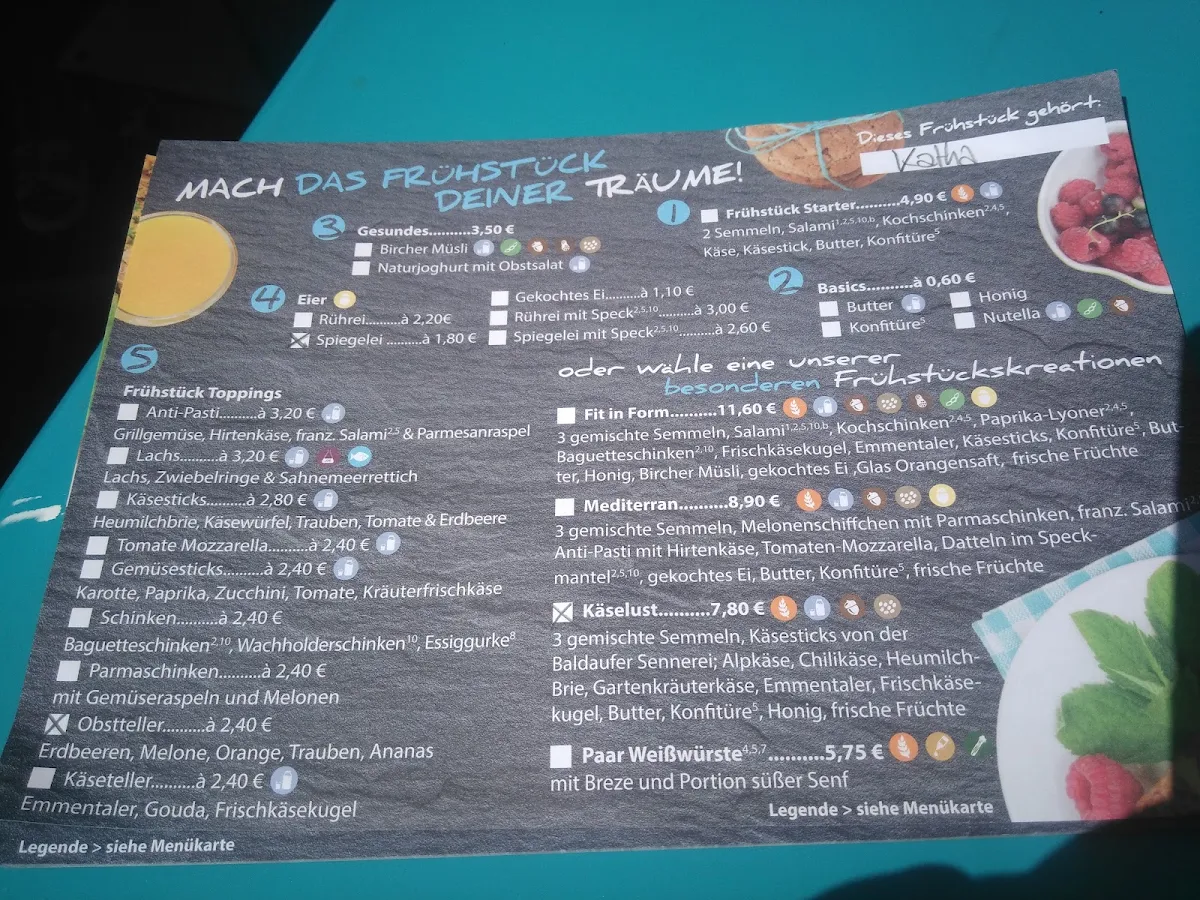 Dieses Frühstück gehört:
Katha
MACH DAS FRÜHSTÜCK
DEINER TRÄUME!
1
Frühstück Starter.........4,90 €
2 Semmeln, Salami1,2,5,10,b, Kochschinken2,4,5,
Käse, Käsestick, Butter, Konfitüre5
2
Basics..........à 0,60 €
Butter
Honig
Konfitüre5
Nutella
3
Gesundes..........3,50 €
Bircher Müsli
Naturjoghurt mit Obstsalat
4
Eier
Rührei.........à 2,20€
Spiegelei .........à 1,80 €
Gekochtes Ei.........à 1,10 €
Rührei mit Speck2,5,10.........à 3,00 €
Spiegelei mit Speck2,5,10.........à 2,60 €
5
Frühstück Toppings
Anti-Pasti.........à 3,20 €
Grillgemüse, Hirtenkäse, franz. Salami2,5 & Parmesanraspel
Lachs.........à 3,20 €
Lachs, Zwiebelringe & Sahnemeerrettich
Käsesticks.........à 2,80 €
Heumilchbrie, Käsewürfel, Trauben, Tomate & Erdbeere
Tomate Mozzarella.........à 2,40 €
Gemüsesticks.........à 2,40 €
Karotte, Paprika, Zucchini, Tomate, Kräuterfrischkäse
Schinken.........à 2,40 €
Baguetteschinken2,10, Wachholderschinken10, Essiggurke8
Parmaschinken.........à 2,40 €
mit Gemüseraspeln und Melonen
Obstteller.........à 2,40 €
Erdbeeren, Melone, Orange, Trauben, Ananas
Käseteller.........à 2,40 €
Emmentaler, Gouda, Frischkäsekugel
Legende > siehe Menükarte
oder wähle eine unserer
besonderen Frühstückskreationen
Fit in Form..........11,60 €
3 gemischte Semmeln, Salami1,2,5,10,b, Kochschinken2,4,5, Paprika-Lyoner2,4,5,
Baguetteschinken2,10, Frischkäsekugel, Emmentaler, Käsesticks, Konfitüre5, But-
ter, Honig, Bircher Müsli, gekochtes Ei ,Glas Orangensaft, frische Früchte
Mediterran..........8,90 €
3 gemischte Semmeln, Melonenschiffchen mit Parmaschinken, franz. Salami
Anti-Pasti mit Hirtenkäse, Tomaten-Mozzarella, Datteln im Speck-
mantel2,5,10, gekochtes Ei, Butter, Konfitüre5, frische Früchte
Käselust..........7,80 €
3 gemischte Semmeln, Käsesticks von der
Baldaufer Sennerei; Alpkäse, Chilikäse, Heumilch-
Brie, Gartenkräuterkäse, Emmentaler, Frischkäse-
kugel, Butter, Konfitüre5, Honig, frische Früchte
Paar Weißwürste4,5,7..........5,75 €
mit Breze und Portion süßer Senf
Legende > siehe Menükarte